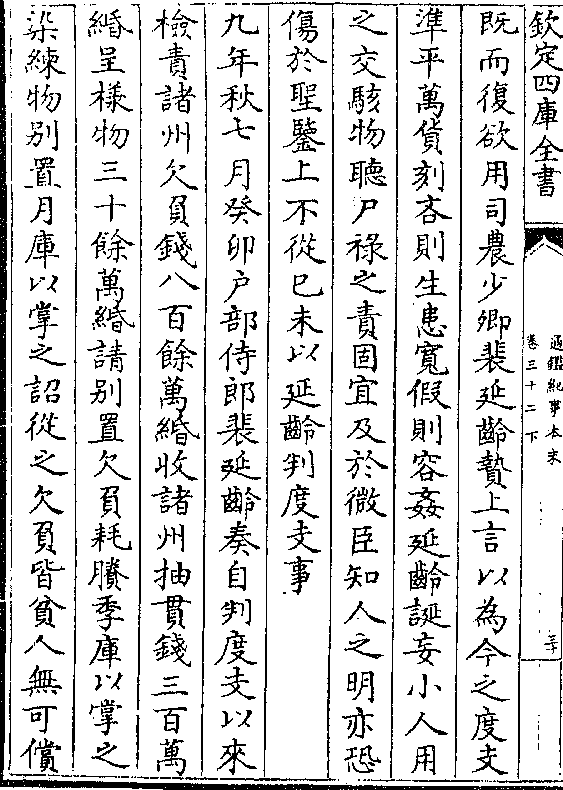 欽定四庫全書
通鑑紀事本末
卷三十二下
三十
既而復欲用司農少卿裴延齡贄上言以為今之度支
準平萬貨刻吝則生患寬假則容姦延齡誕妄小人用
之交駭物聽尸祿之責固宜及於微臣知人之明亦恐
傷於聖鑒上不從已未以延齡判度支事
九年秋七月癸卯戶部侍郎裴延齡奏自判度支以來
檢責諸州欠負錢八百餘萬緡收諸州抽貫錢三百萬
緡呈樣物三十餘萬緡請别置欠負耗賸季庫以掌之
染練物别置月庫以掌之詔從之欠負皆貧人無可償